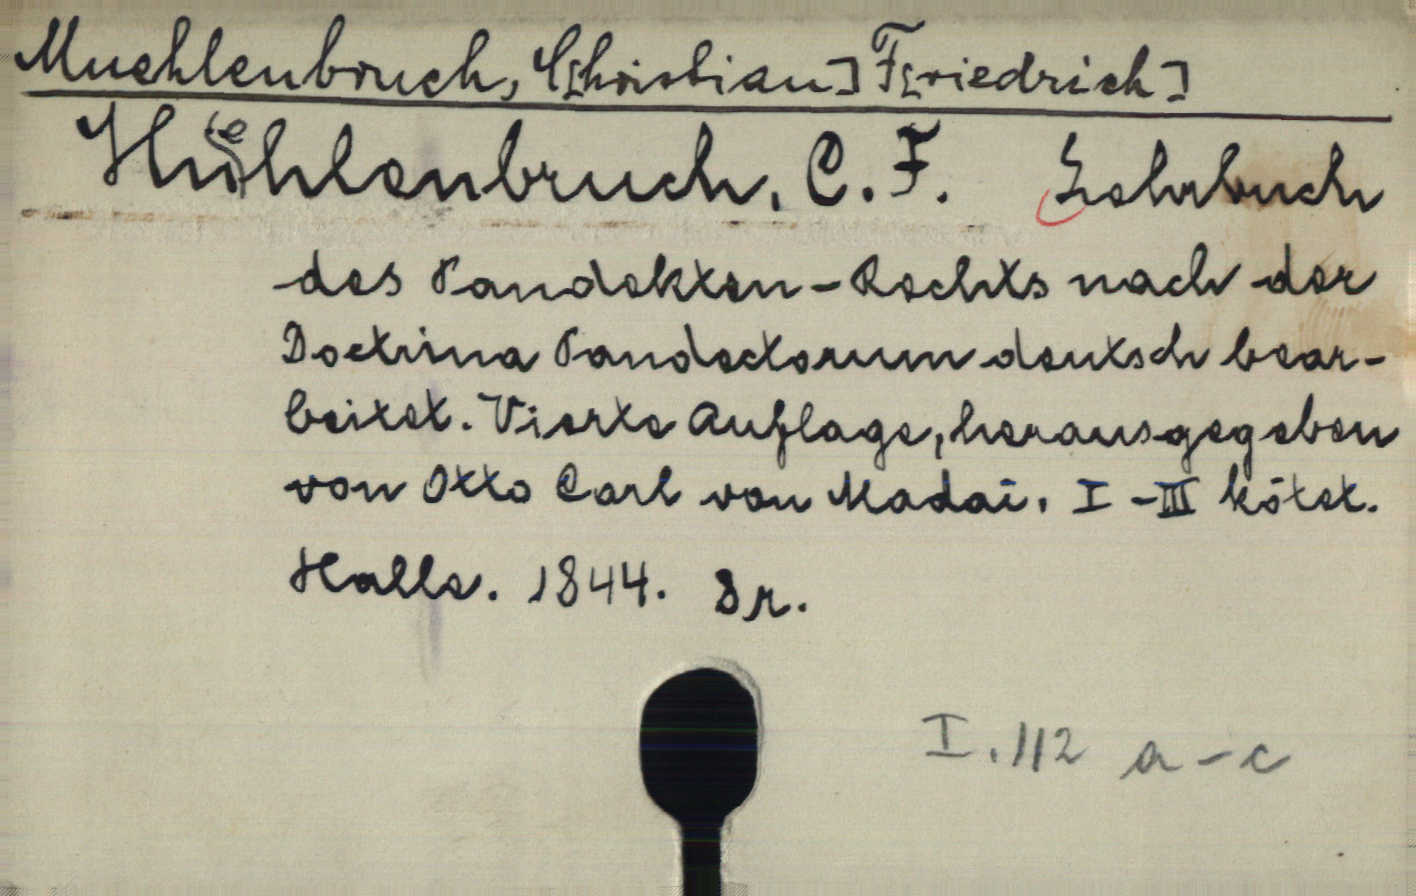 Muehlenbruch, C[hristian] F[riedrich]
Mühlenbruch, C. F. Lehrbuch
des Pandekten-Rechts nach der
Doctrina Pandectarum deutsch bear-
beitet. Vierte Auflage, herausgegeben
von Otto Carl von Madai. I-III kötet.
Halle. 1844. 8r.
I. 112 a-c